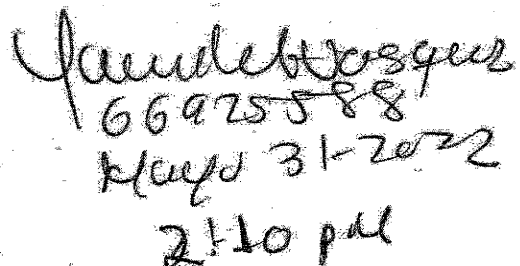 Yaundeb Vasquez
66925588
Mayo 31-2022
2:10 pm